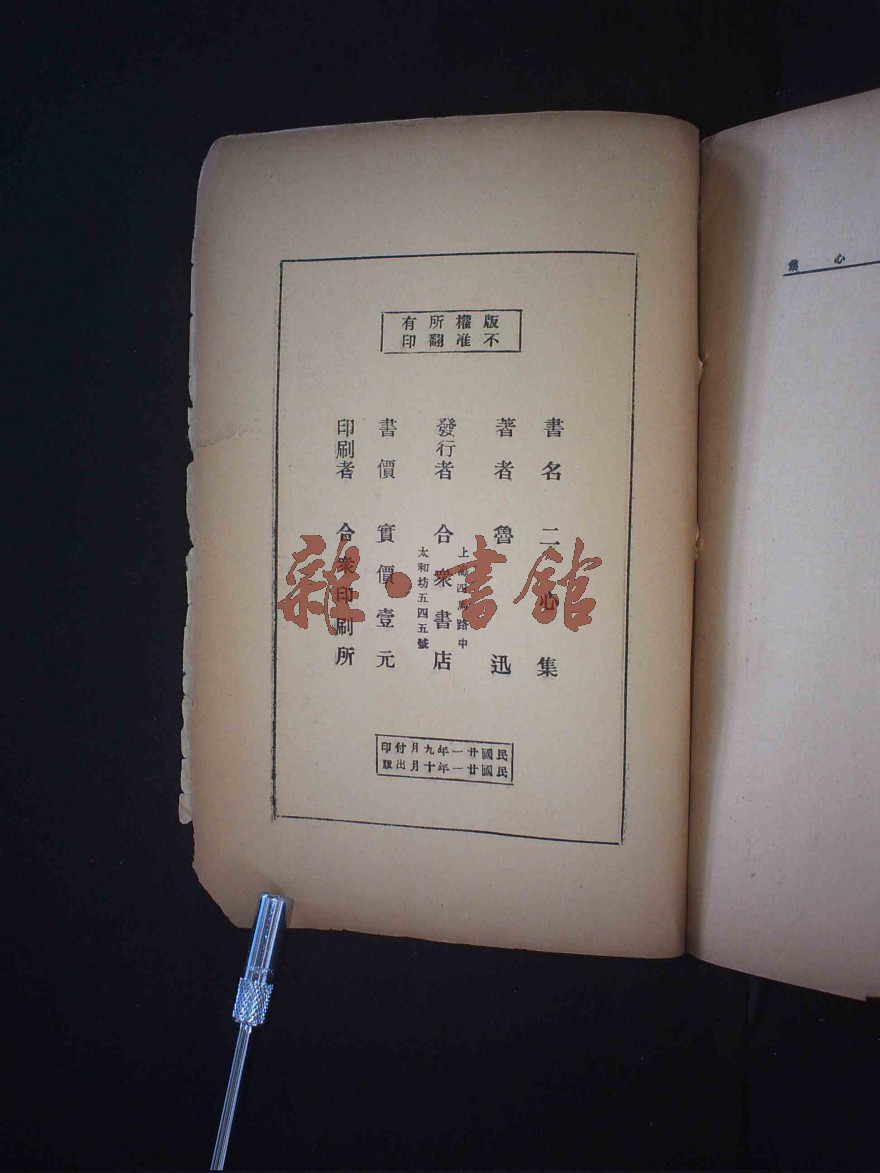 版權所有
不准翻印
書名 二心集
著者 魯迅
發行者 合衆書店
上海四馬路中
太和坊五四五號
書價 實價壹元
印刷者 合衆印刷所
民國廿一年九月付印
民國廿一年十月出版
心集
雜·書館